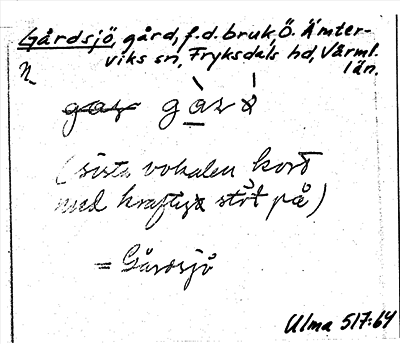 Gårdsjö, gård, f.d. bruk, Ö. Ämter-
viks sn, Fryksdals hd, Värml.
län.
(sista vokalen kort
med kraftig stöt på)
= Gårdsjö
Ulma 517:64